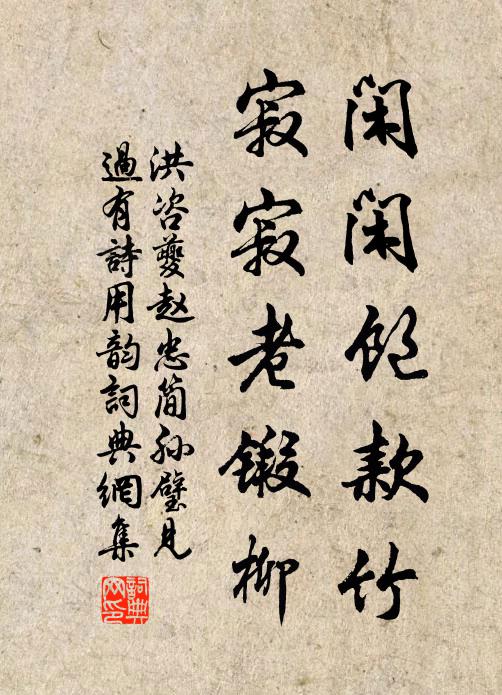 閑閑飽款竹
寂寂老鍛柳
洪咨夔赵忠简孙璧见
過有詩用韵詞典網集